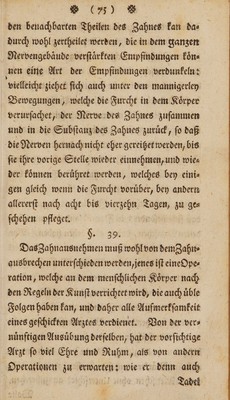 ❉ ( 75 ) ❉
den benachbarten Theilen des Zahnes kan da-
durch wohl zertheilet werden, die in dem ganzen
Nervengebäude verstärkten Empfindungen kön-
nen eine Art der Empfindungen verdunkeln:
vielleicht ziehet sich auch unter den mannigerley
Bewegungen, welche die Furcht in dem Körper
verursachet, der Nerve des Zahnes zusammen
und in die Substanz des Zahnes zurück, so daß
die Nerven hernach nicht eher gereitzet werden, bis
sie ihre vorige Stelle wieder einnehmen, und wie-
der können berühret werden, welches bey eini-
gen gleich wenn die Furcht vorüber, bey andern
allererst nach acht bis vierzehn Tagen, zu ge-
schehen pfleget.
§. 39.
Das Zahnausnehmen muß wohl von dem Zahn-
ausbrechen unterschieden werden, jenes ist eine Ope-
ration, welche an dem menschlichen Körper nach
den Regeln der Kunst verrichtet wird, die auch üble
Folgen haben kan, und daher alle Aufmerksamkeit
eines geschickten Arztes verdienet. Von der ver-
nünftigen Ausübung derselben, hat der vorsichtige
Arzt so viel Ehre und Ruhm, als von andern
Operationen zu erwarten: wie er denn auch
Tadel